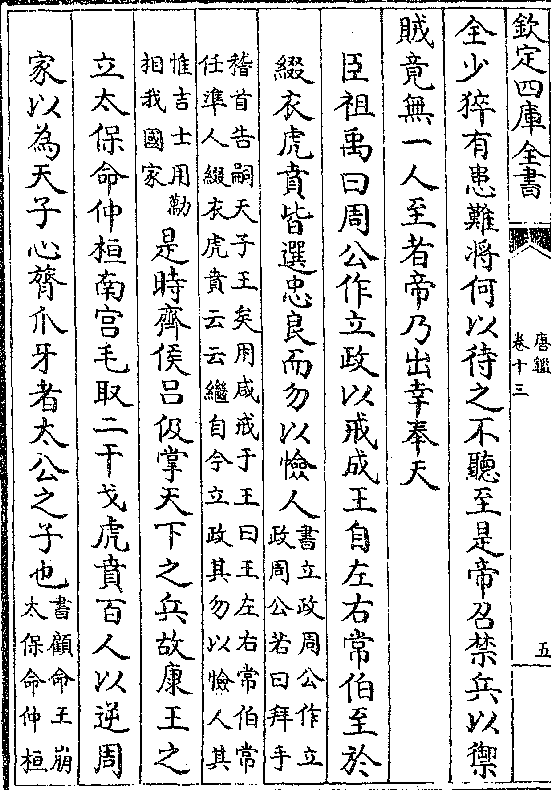 欽定四庫全書
唐鑑
卷十三
五
全少猝有患難將何以待之不聽至是帝召禁兵以禦
賊竟無一人至者帝乃出幸奉天
臣祖禹曰周公作立政以戒成王自左右常伯至於
綴衣虎賁皆選忠良而勿以憸人
書立政周公作立
政周公若曰拜手
稽首告嗣天子王矣用咸戒于王曰王左右常伯常
任準人綴衣虎賁云云繼自今立政其勿以憸人其
惟吉士用勸
相我國家
是時齊侯呂伋掌天下之兵故康王之
立太保命仲桓南宫毛取二干戈虎賁百人以逆周
家以為天子心膂爪牙者太公之子也
書顧命王崩
太保命仲桓